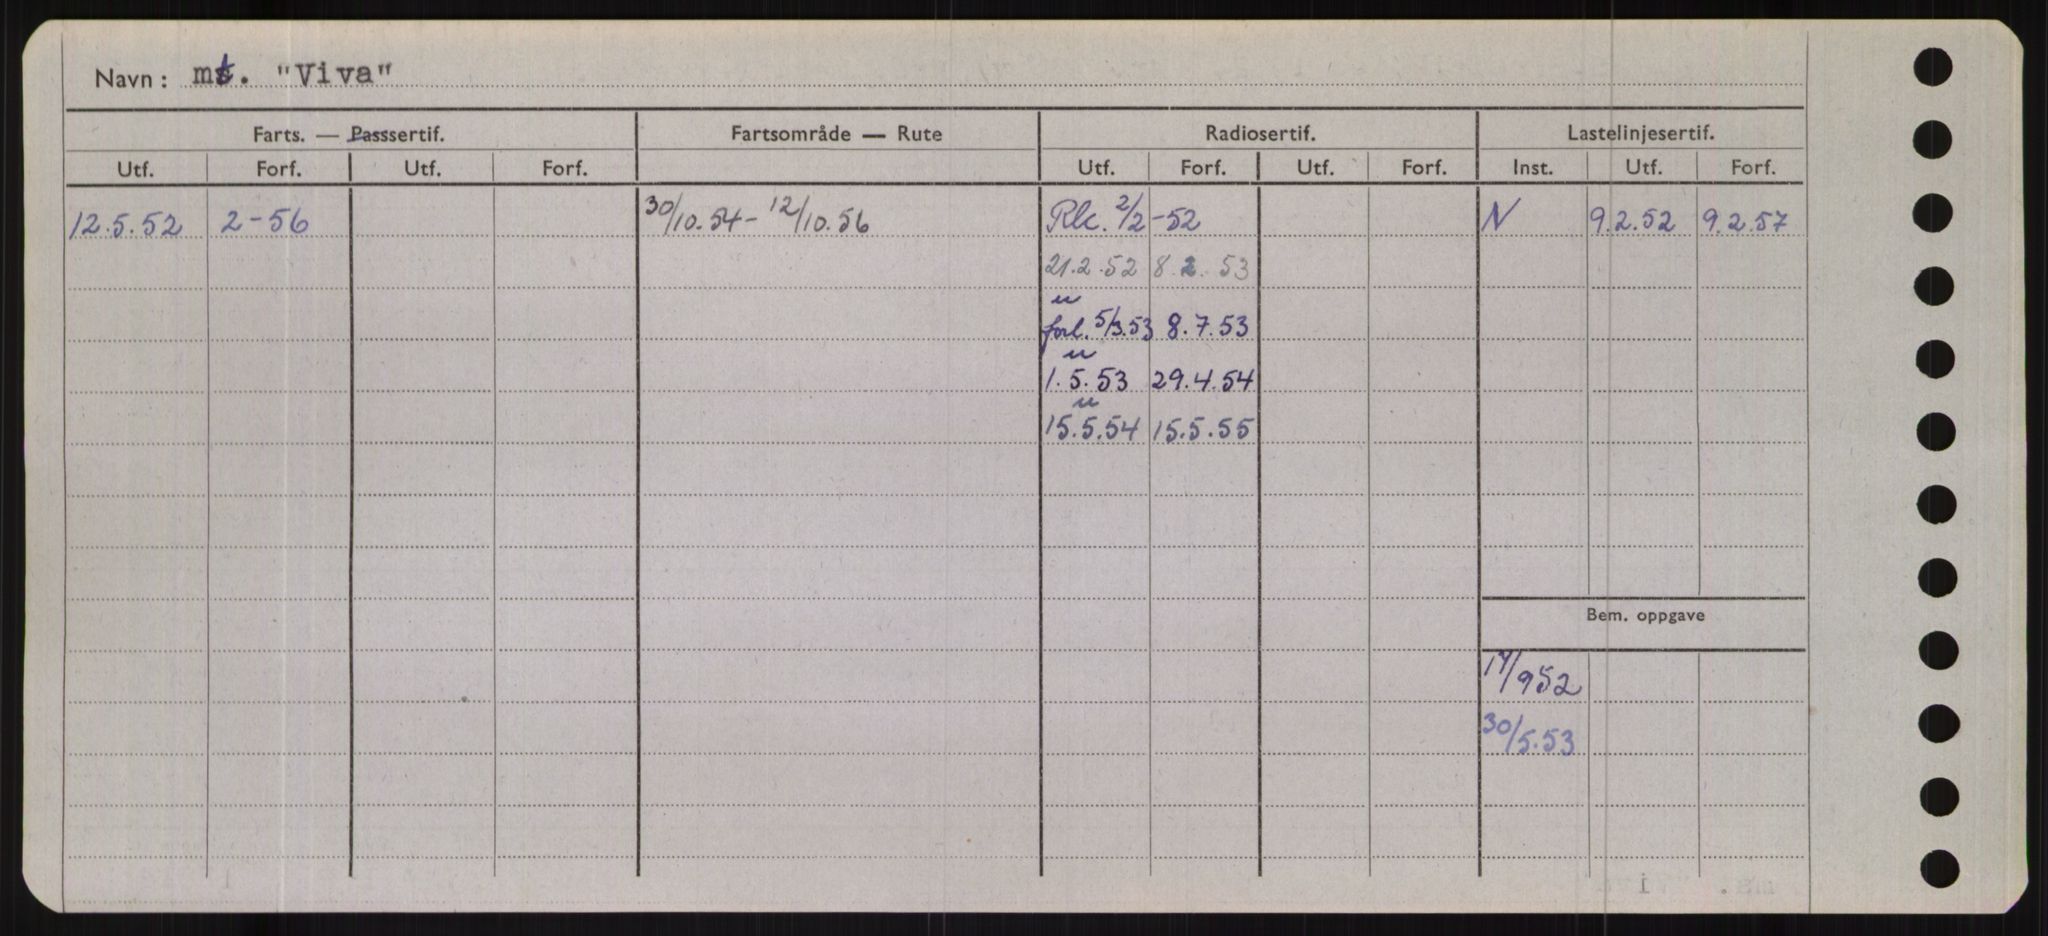 Navn: mt. "Viva"
Farts. — Passsertif. Fartsområde — Rute Radiosertif. Lastelinjesertif.
Utf. Forf. Utf. Forf. Utf. Forf. Utf. Forf. Inst. Utf. Forf.
12.5.52 2-56 30/10.54 - 12/10.56 Rlc. 2/2-52 N 9.2.52 9.2.57
21.2.52 8.2.53
u
forl. 5/3.53 8.7.53
u
1.5.53 29.4.54
u
15.5.54 15.5.55
Bem. oppgave
/952
30/5.53